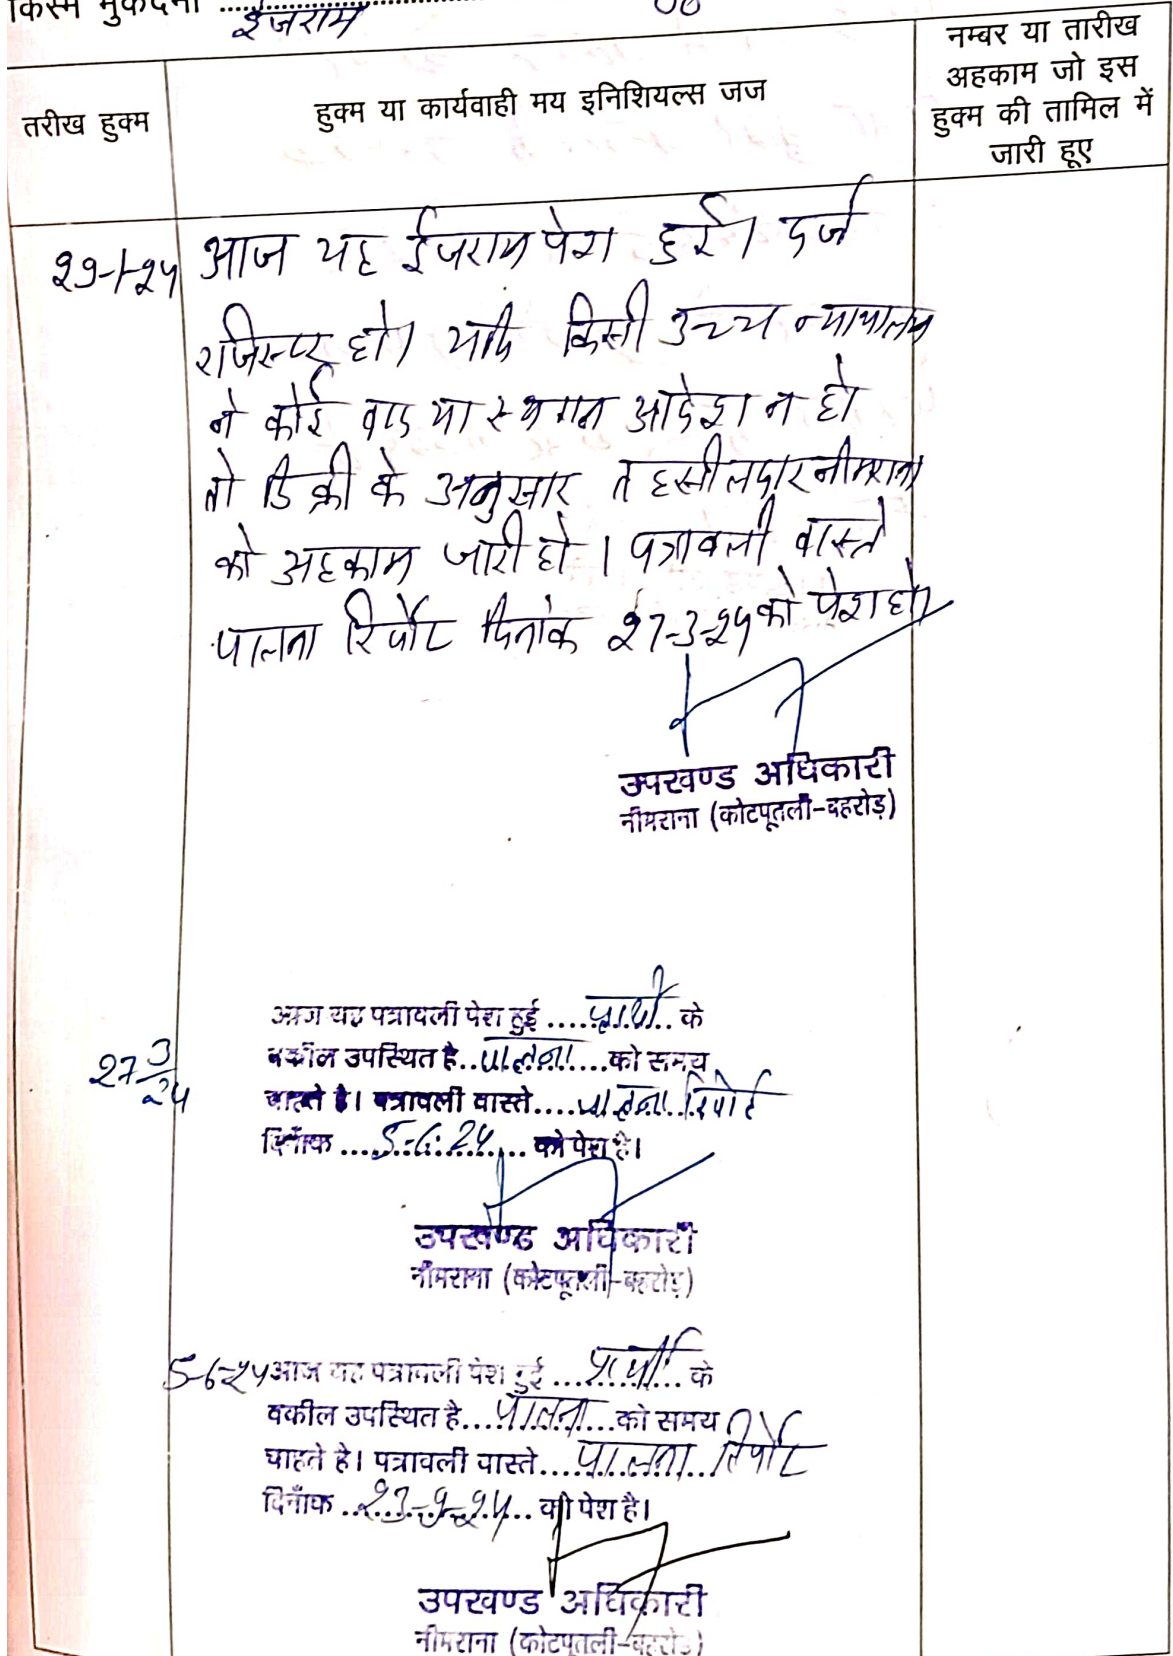 किस्म मुकदमा ........ ईजराय
तरीख हुक्म
हुक्म या कार्यवाही मय इनिशियल्स जज
नम्बर या तारीख
अहकाम जो इस
हुक्म की तामिल में
जारी हूए
29-1-24 आज यह ईजराय पेश हुई। दर्ज
रजिस्टर हो। यदि किसी उच्च न्यायालय
ने कोई वाद या स्थगन आदेश न हो
तो डिक्री के अनुसार तहसीलदार नीमराना
को अहकाम जारी हो। पत्रावली वास्ते
पालना रिर्पोट दिनांक 27-3-24 को पेश हो।
उपखण्ड अधिकारी
नीमराना (कोटपूतली-बहरोड़)
27 3/24 आज यह पत्रावली पेश हुई ....प्रार्थी.. के
वकील उपस्थित है..पालना....को समय
चाहते है। पत्रावली वास्ते....पालना रिपोर्ट
दिनाँक ....5-6-24.... को पेश है।
उपखण्ड अधिकारी
नीमराना (कोटपूतली-बहरोड़)
5-6-24 आज यह पत्रावली पेश हुई ...प्रार्थी... के
वकील उपस्थित है...पालना...को समय
चाहते है। पत्रावली वास्ते....पालना रिर्पोट
दिनाँक ..23-9-24.. को पेश है।
उपखण्ड अधिकारी
नीमराना (कोटपूतली-बहरोड़)